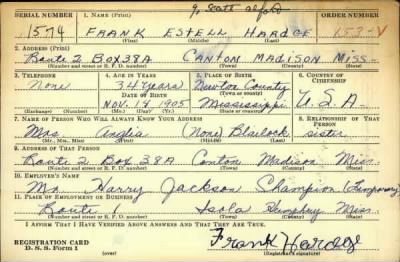 SERIAL NUMBER 1. NAME (Print) ORDER NUMBER
1574 FRANK ESTELL HARDGE 153-V
(First) (Middle) (Last)
2. ADDRESS (Print)
Route 2 BOX 38A CANTON MADISON MISS-
(Number and street or R. F. D. number) (Town) (County) (State)
3. TELEPHONE 4. AGE IN YEARS 5. PLACE OF BIRTH 6. COUNTRY OF CITIZENSHIP
None 34 years Newton County
DATE OF BIRTH (Town or county)
NOV. 14 1905 Mississippi U.S.A-
(Exchange) (Number) (Mo.) (Day) (Yr.) (State or country)
7. NAME OF PERSON WHO WILL ALWAYS KNOW YOUR ADDRESS 8. RELATIONSHIP OF THAT PERSON
Mrs. Anglia (None) Blailock sister
(Mr., Mrs., Miss) (First) (Middle) (Last)
9. ADDRESS OF THAT PERSON
Route 2 Box 38A Canton Madison Miss.
(Number and street or R. F. D. number) (Town) (County) (State)
10. EMPLOYER'S NAME
Mr. Harry Jackson Champion (Temporary)
11. PLACE OF EMPLOYMENT OR BUSINESS
Route 1 Isola Humphrey Miss.
(Number and street or R. F. D. number) (Town) (County) (State)
I AFFIRM THAT I HAVE VERIFIED ABOVE ANSWERS AND THAT THEY ARE TRUE.
REGISTRATION CARD
D. S. S. Form 1 (over) Frank Hardge
(Registrant's signature)